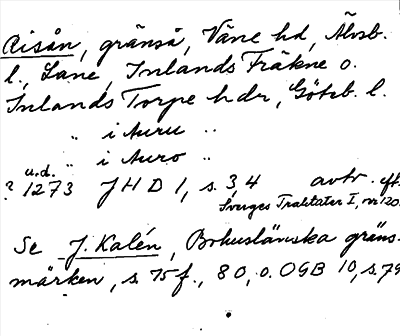 Risån, gränså, Väne hd, Älvsb.
l., Lane, Inlands Fräkne o.
Inlands Torpe hdr, Göteb. l.
„ i Auru „
u.d. „ i Auro „
? 1273 JHD 1, s. 3, 4 avtr. eft.
Sveriges Traktater I, nr 120.
Se J. Kalén, Bohuslänska gräns-
märken, s. 75 f., 80, o. OGB 10, s. 79